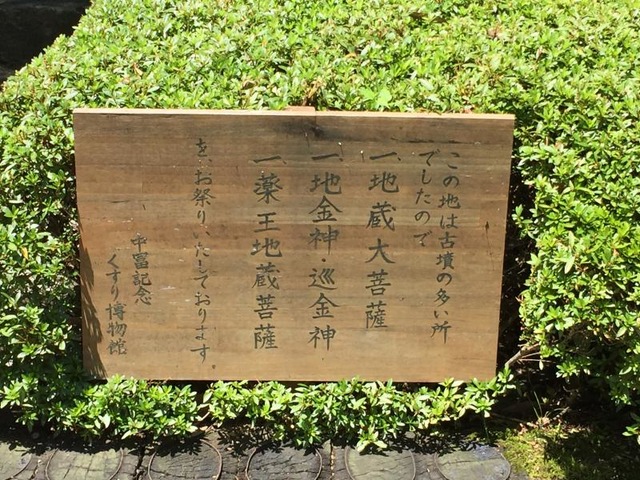 この地は古墳の多い所
でしたので
一、地蔵大菩薩
一、地金神・巡金神
一、薬王地蔵菩薩
を、お祭りいたしております
中冨記念
くすり博物館